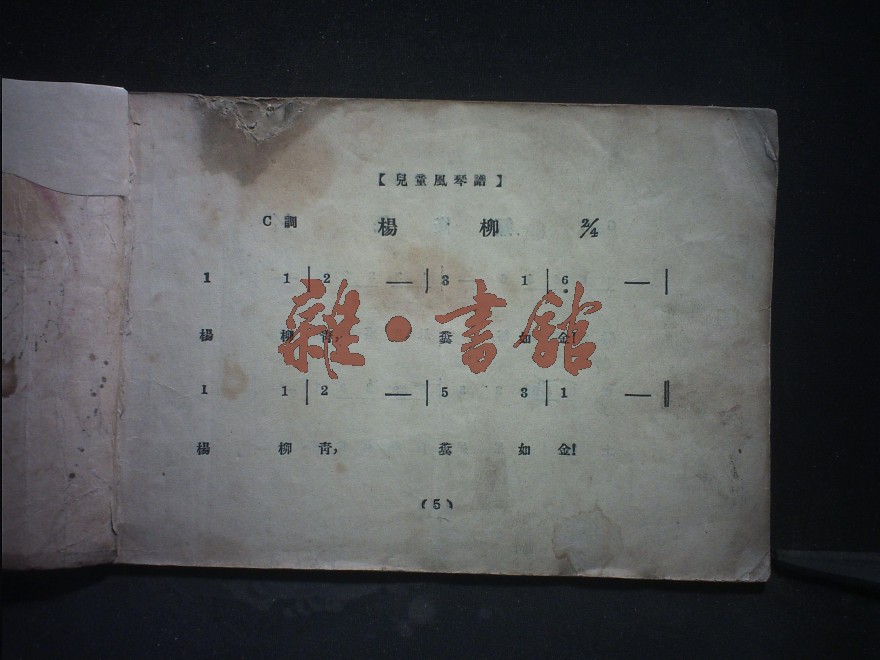 【兒童風琴譜】
C調 楊柳 2/4
1 1 | 2 — | 3 1 | 6̣ — |
楊 柳 青, 蕊 如 金!
1 1 | 2 — | 5 3 1 | 1 — ‖
楊 柳 青, 蕊 如 金!
(5)
雜•書館